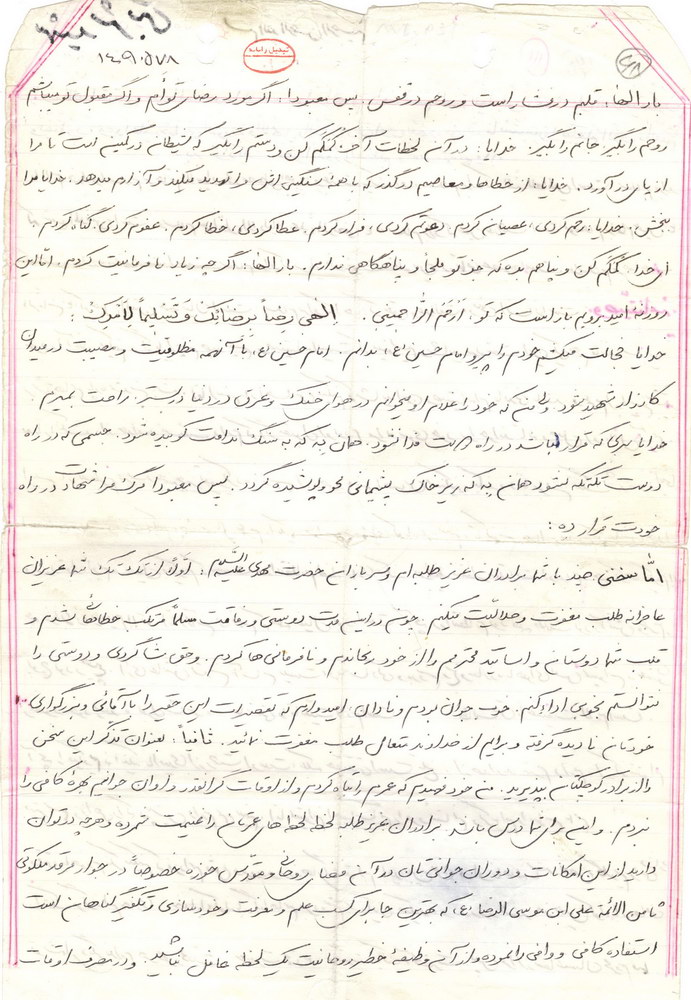 ۱۴۰۹۰۵۷۸
تبدیل رایانه
۴۸
بارالها: قلبم در فشار است و روحم در قفس، پس معبودا: اگر مورد رضای توأم و اگر مقبول تو میباشم
روحم را بگیر جانم را بگیر. خدایا: در آن لحظات آخر کمکم کن و دستم را بگیر که شیطان در کمین است تا مرا
از پای در آورد. خدایا: از خطاها و معاصیم درگذر که با همه سنگینی اش مرا تهدید میکند و آزارم میدهد. خدایا مرا
ببخش، خدایا: رحم کردی، عصیان کردم. دعوتم کردی، فرار کردم. عطا کردی، خطا کردم. عفوم کردی، گناه کردم.
ای خدا. کمکم کن و پناهم بده که جز تو ملجأ و پناهگاهی ندارم. بارالها: اگر چه زیاد نافرمانیت کردم. اما این
روزنۀ امید برویم باز است که تو، ارحم الراحمینی. الهی رضاً برضائک و تسلیماً لأمرک:
خدایا خجالت میکشم خودم را پیرو امام حسین (ع) بدانم. امام حسین (ع) با آنهمه مظلومیت و مصیبت در میدان
کارزار شهید شود. ولی من که خود را غلام او میخوانم در هوای خنک و غرق در دنیا در بستر. راحت بمیرم.
خدایا سری که قرار نباشد در راه دوست فدا نشود. همان به که به سنگ ندامت کوبیده شود. جسمی که در راه
دوست تکه تکه نشود همان به که زیر خاک پشیمانی محو و پوشیده گردد. پس معبودا مرگ مرا شهادت در راه
خودت قرار ده:
اما سخنی چند با شما برادران عزیز طلبه ام و سربازان حضرت مهدی علیه السلام: اولاً از تک تک شما عزیزان
عاجزانه طلب مغفرت و حلالیت میکنم. چون در این مدت دوستی و رفاقت مسلماً مرتکب خطاهائی شدم و
قلب شما دوستان و اساتید محترم را از خود رنجاندم و نافرمانی ها کردم. و حق شاگردی و دوستی را
نتوانستم بخوبی ادا کنم. خوب جوان بودم و نادان. امیدوارم که تقصیرات این حقیر را با آقائی و بزرگواری
خودتان نادیده گرفته و برایم از خداوند متعال طلب مغفرت نمائید. ثانیاً: بعنوان تذکر این سخن
را از برادر کوچکتان بپذیرید. من خود فهمیدم که عمرم را تباه کردم و از اوقات گرانقدر و اوان جوانیم بهرۀ کافی را
نبردم. و این برای شما درس باشد. برادران عزیز طلبه لحظه لحظه های عمرتان را غنیمت شمرده و هر چه در توان
دارید از این امکانات و دوران جوانی تان در آن فضای روحانی و مقدس حوزه خصوصاً در جوار مرقد ملکوتی
ثامن الائمة علی ابن موسی الرضا (ع) که بهترین جا برای کسب علم و معرفت و خودسازی و تکفیر گناهان است
استفاده کافی و وافی را نموده و از آن وظیفۀ خطیر روحانیت یک لحظه غافل نباشید. و در مصرف اوقات